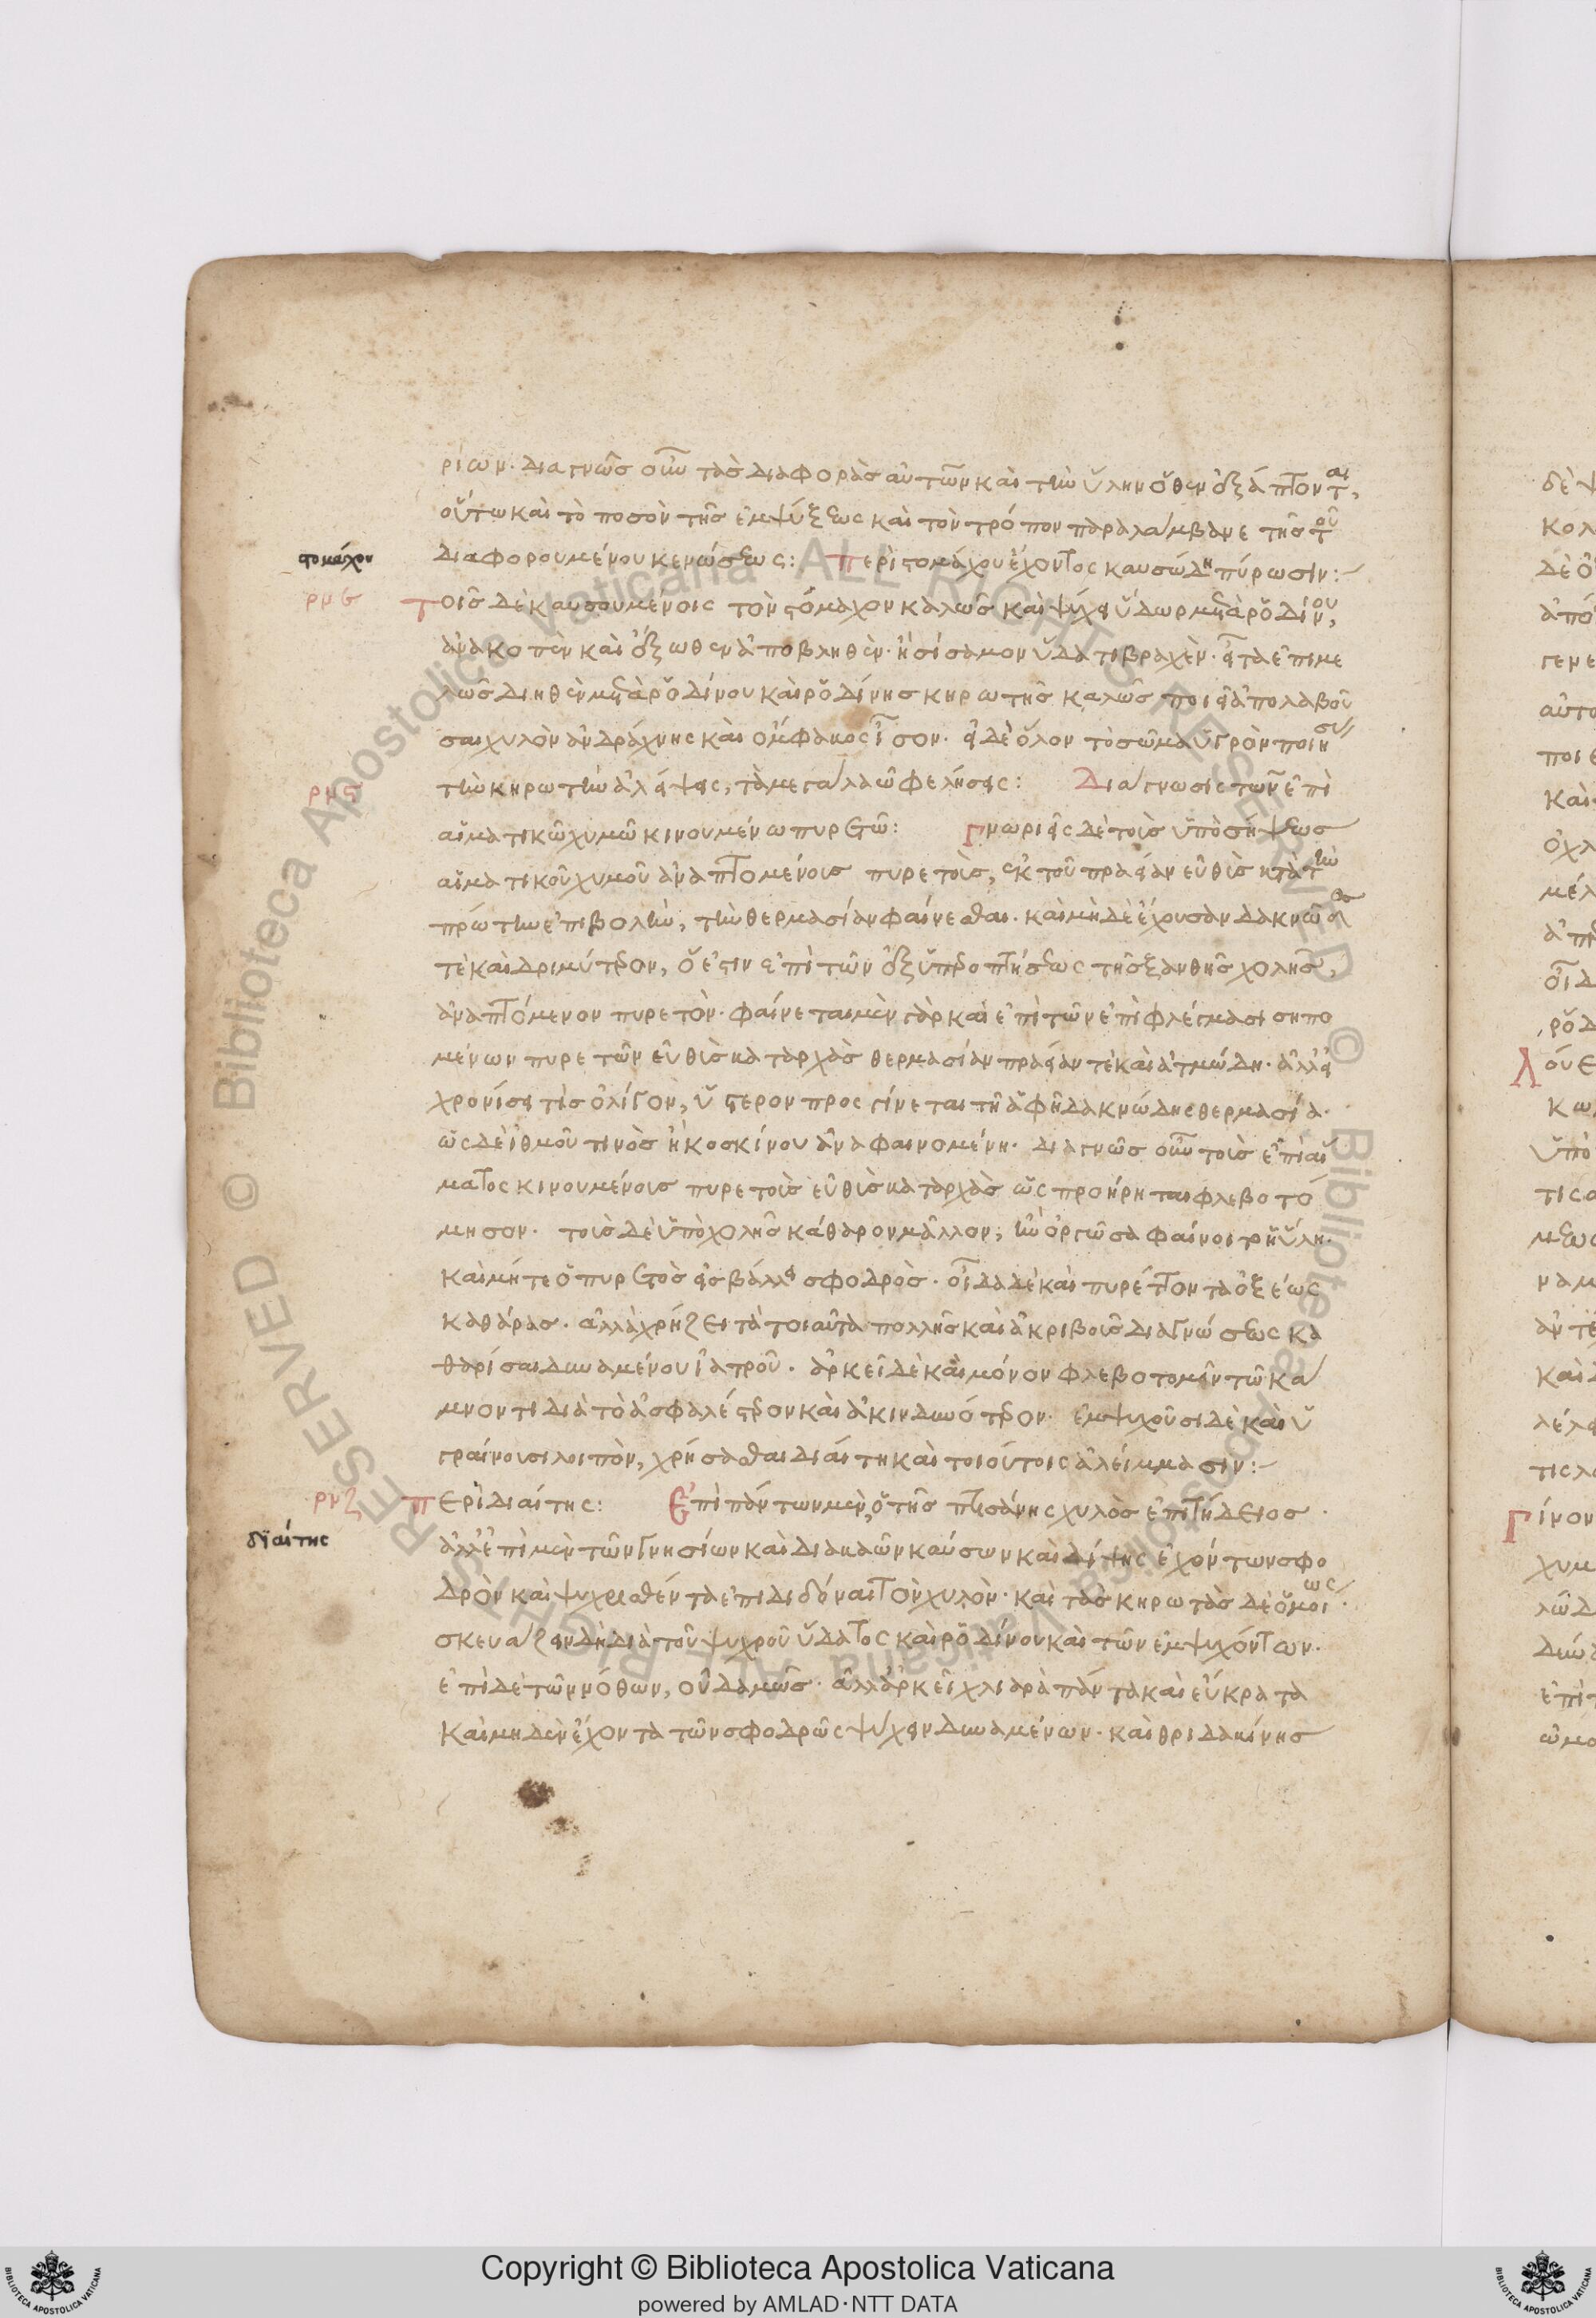 ρίων. διαγνῶς οὖν τὰς διαφορὰς αὐτῶν καὶ τὴν ὕλην ὅθεν ἐξάπτονται,
οὕτω καὶ τὸ ποσὸν τῆς ἐμψύξεως καὶ τὸν τρόπον παραλάμβανε τῆς τοῦ
στομάχου
διαφορουμένου κενώσεως: Περὶ στομάχου ἔχοντος καυσώδη πύρωσιν:
ρνε
Τοῖς δὲ καυσουμένοις τὸν στόμαχον καλῶς καὶ ψύχει ὕδωρ μετὰ ῥοδίνου,
ἀνακοπὲν καὶ ἔξωθεν ἀποβληθέν. ἢ σίσαμον ὕδατι βραχὲν. εἶτα ἐπιμε
λῶς διηθὲν μετὰ ῥοδίνου καὶ ῥοδίνης κηρωτῆς καλῶς ποιεῖ ἀπολαβοῦ
σαι χυλὸν ἀνδράχνης καὶ ὄμφακος ἴσον. εἰ δὲ ὅλον τὸ σῶμα ὑγρὸν ποιήσεις
ρνς
τὴν κηρωτὴν ἀλείψεις, τὰ μεγάλα ὠφελήσεις: Διάγνωσις τῶν ἐπὶ
αἱματικῶ χυμῶ κινουμένω πυρετῶ: Γνωριεῖς δὲ τοὺς ὑπὸ σήψεως
αἱματικοῦ χυμοῦ ἀναπτομένοις πυρετοῖς, ἐκ τοῦ πραεῖαν εὐθὺς κατὰ τὴν
πρώτην ἐπιβολὴν, τὴν θερμασίαν φαίνεσθαι. καὶ μὴ δὲ ἔχουσαν δακνῶδες
τὲ καὶ δριμύτερον, ὅ ἐστιν ἐπὶ τῶν ἐξ ὑπεροπτήσεως τῆς ξανθῆς χολῆς,
ἀναπτόμενον πυρετὸν. φαίνεται μὲν γὰρ καὶ ἐπὶ τῶν ἐπὶ φλέγμασι σηπο
μένων πυρετῶν εὐθὺς κατ αρχὰς θερμασίαν πραεῖαν τὲ καὶ ἀτμώδη. ἀλλ εἰ
χρονίσει τὶς ὀλίγον, ὕστερον προσγίνεται τῆ ἁφῆ δακνώδης θερμασία.
ὡς δὲ ἰθμοῦ τινὸς ἢ κοσκίνου ἀναφαινομένη. διαγνῶς οὖν τοῖς ἐπὶ αἵ
ματος κινουμένοις πυρετοῖς εὐθὺς κατ αρχὰς ὡς προήρηται φλεβοτό
μησον. τοὺς δὲ ὑπὸ χολῆς κάθαρον μᾶλλον, ἢν ὀργῶσα φαίνοιτο ἡ ὕλη.
καὶ μήτε ὁ πυρετὸς εἰσβάλλει σφοδρὸς. οἶδα δὲ καὶ πυρέττοντα ὀξέως
καθάρας. ἀλλὰ χρήζει τὰ τοιαῦτα πολλῆς καὶ ἀκριβοῦς διαγνώσεως κα
θαρίσαι δυναμένου ἰατροῦ. ἀρκεῖ δὲ καὶ μόνον φλεβοτομεῖν τῶ κά
μνοντι διὰ τὸ ἀσφαλέστερον καὶ ἀκινδυνότερον. ἐμψυχοῦσι δὲ καὶ ὑ
γραίνουσι λοιπὸν, χρήσασθαι διαίτη καὶ τοιούτοις ἀλείμμασιν:
ρνζ
Περὶ διαίτης: Ἐπὶ πάντων μὲν, ὁ τῆς πτισάνης χυλὸς ἐπιτήδειος.
διαίτης
ἀλλ ἐπὶ μὲν τῶν γνησίων καὶ διακαῶν καύσων καὶ δίψης ἐχόντων σφο
δρὸν καὶ ψυχρισθέντα ἐπιδιδόναι τὸν χυλὸν. καὶ τὰς κηρωτὰς δὲ ὁμοίως.
σκευάζειν δὴ διὰ τοῦ ψυχροῦ ὕδατος καὶ ῥοδίνου καὶ τῶν ἐμψυχόντων.
ἐπὶ δὲ τῶν νόθων, οὐδαμῶς. ἀλλ ἀρκεῖ χλιαρὰ πάντα καὶ εὔκρατα
καὶ μηδὲν ἔχοντα τῶν σφοδρῶς ψύχειν δυναμένων. καὶ θριδακίνης
Copyright © Biblioteca Apostolica Vaticana
powered by AMLAD·NTT DATA